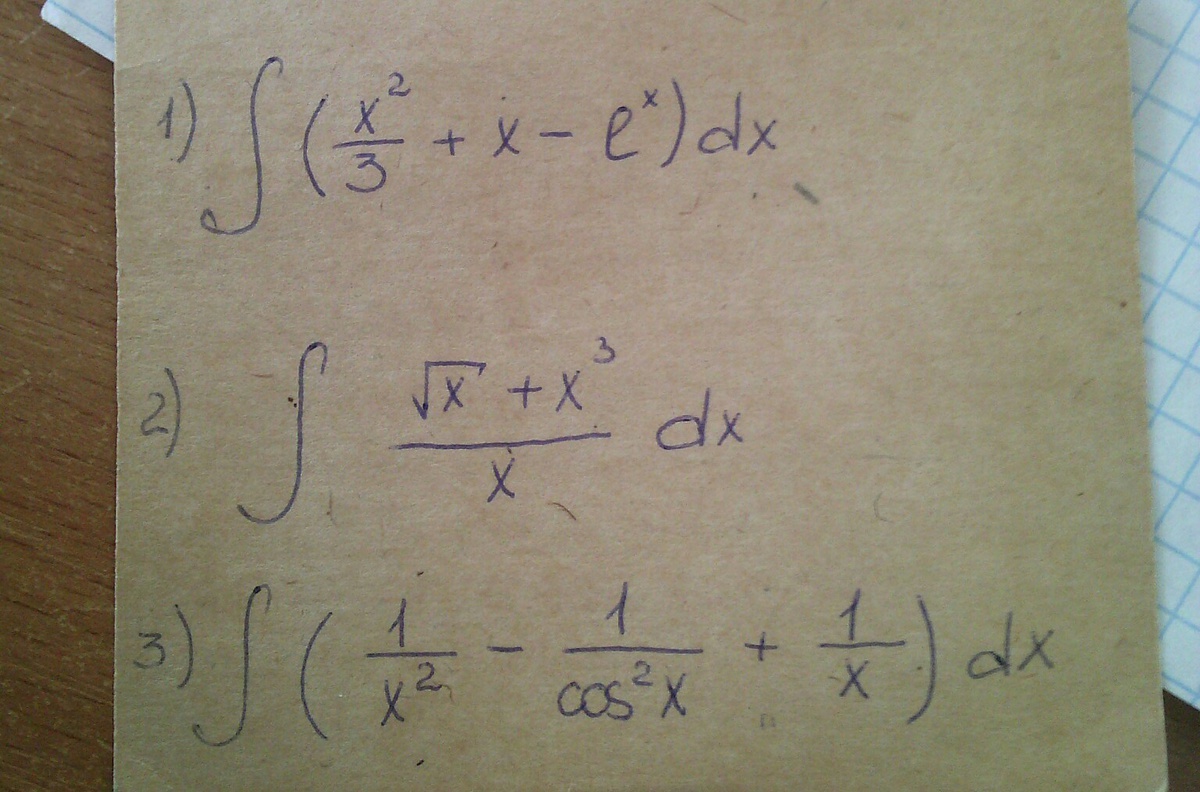 1) ∫ (x²/3 + x - eˣ) dx
2) ∫ (√x + x³)/x dx
3) ∫ (1/x² - 1/cos²x + 1/x) dx